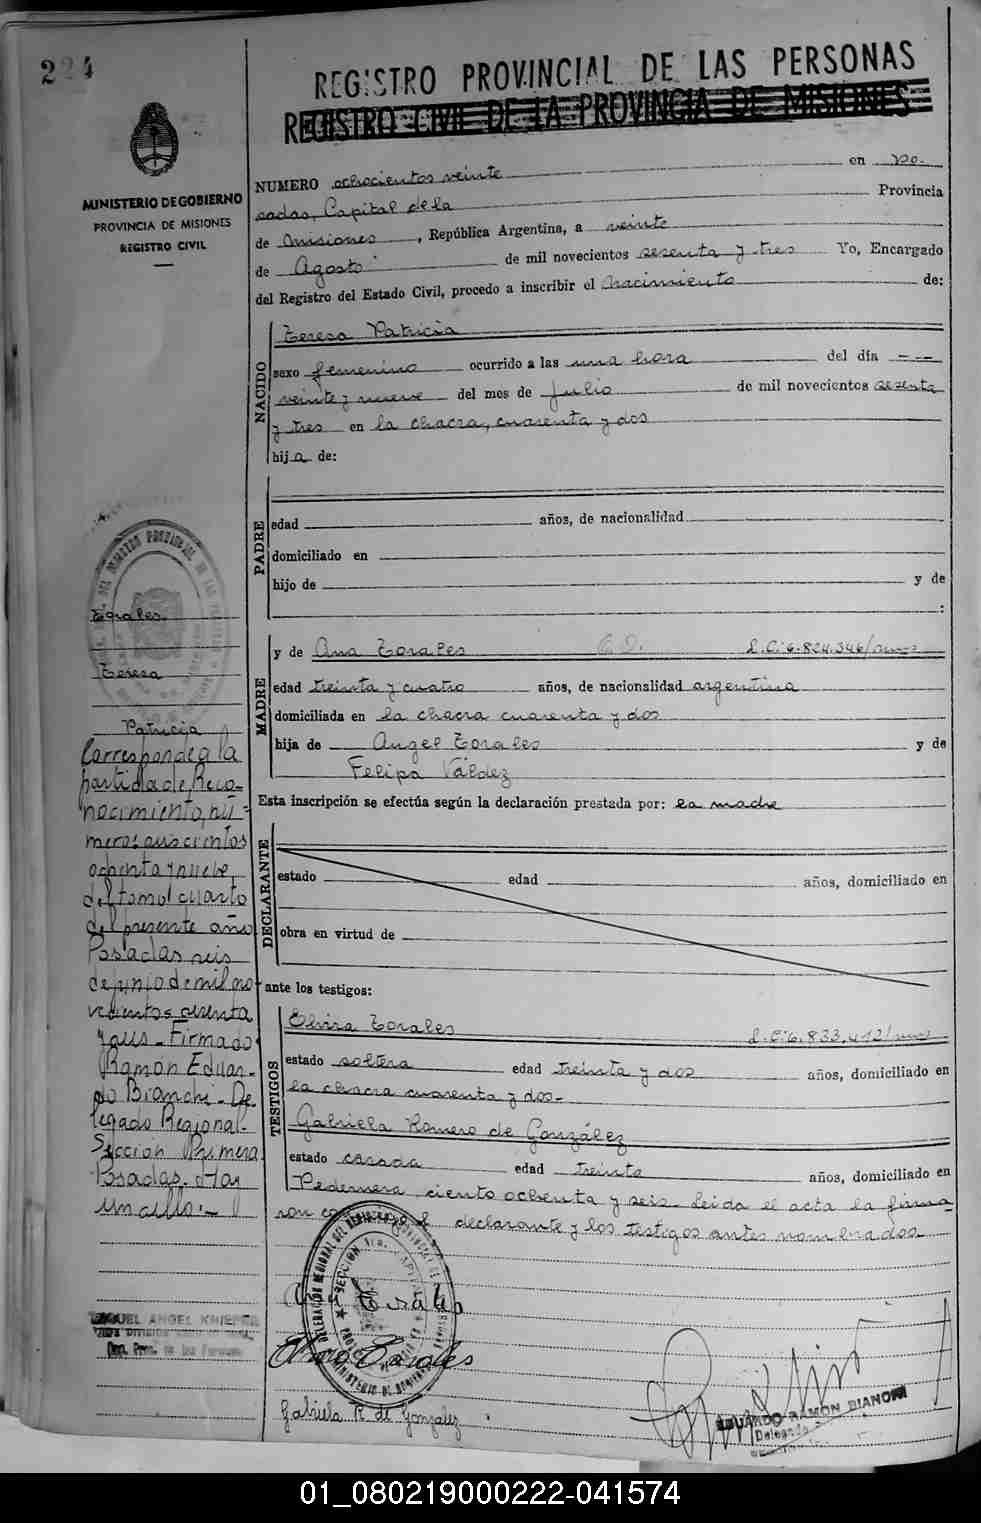 224
REGISTRO PROVINCIAL DE LAS PERSONAS
REGISTRO CIVIL DE LA PROVINCIA DE MISIONES
MINISTERIO DE GOBIERNO
PROVINCIA DE MISIONES
REGISTRO CIVIL
NUMERO ochocientos veinte en Po-
sadas, Capital de la Provincia
de Misiones, República Argentina, a veinte
de Agosto de mil novecientos sesenta y tres Yo, Encargado
del Registro del Estado Civil, procedo a inscribir el Nacimiento de:
NACIDO
Teresa Patricia
sexo femenino ocurrido a las una hora del día
veinte y nueve del mes de Julio de mil novecientos sesenta
y tres en la chacra, cuarenta y dos
hija de:
PADRE
edad años, de nacionalidad
domiciliado en
hijo de y de
:
MADRE
y de Ana Torales L.C. 6.824.346
edad treinta y cuatro años, de nacionalidad argentina
domiciliada en la chacra cuarenta y dos
hija de Angel Torales y de
Felipa Váldez
Esta inscripción se efectúa según la declaración prestada por: la madre
DECLARANTE
estado edad años, domiciliado en
obra en virtud de
ante los testigos:
TESTIGOS
Elvira Torales L.C. 6.833.412
estado soltera edad treinta y dos años, domiciliado en
la chacra cuarenta y dos-
Gabriela Romero de González
estado casada edad treinta años, domiciliado en
Pedernera ciento ochenta y seis. Leida el acta la firma-
ron declarante y los testigos antes nombrados.
Torales
Teresa
Patricia
Corresponde a la
partida de Reco-
nocimiento, nú-
mero: doscientos
ochenta y nueve,
del tomo cuarto
del presente año
Posadas seis
de junio de mil no-
vecientos sesenta
y seis - Firmado
Ramón Eduar-
do Bianchi - De
legado Regional-
Sección Primera
Posadas. Hay
un sello.-
MIGUEL ANGEL KNIEPER
DELEGACION REGIONAL DEL REGISTRO PROVINCIAL DE
SECCION 1ra. CAPITAL
Ana Torales
Elvira Torales
Gabriela R de Gonzalez
EDUARDO RAMON BIANCHI
Delegado
01_080219000222-041574